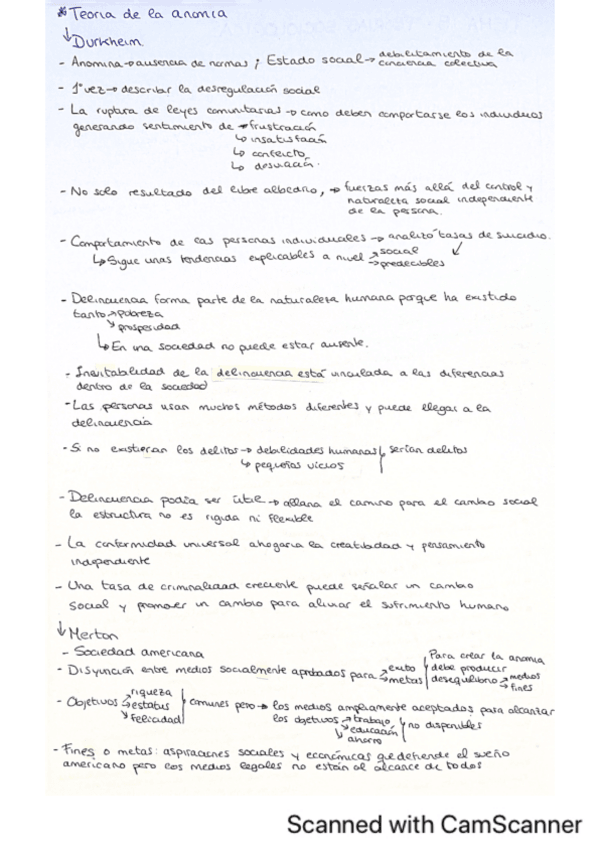 * Teoría de la anomia
↓ Durkheim
- Anomina → ausencia de normas ; Estado social → debilitamiento de la conciencia colectiva
- 1ª vez → describir la desregulación social
- La ruptura de leyes comunitarias → como deben comportarse los individuos
generando sentimiento de → frustración
↳ insatisfación
↳ conflicto
↳ desviación.
- No solo resultado del libre albedrio, → fuerzas más allá del control y
naturaleza social independiente
de la persona.
- Comportamiento de las personas individuales → analizó tasas de suicidio.
↳ Sigue unas tendencias explicables a nivel → social
→ predecibles
- Delincuencia forma parte de la naturaleza humana porque ha existido
tanto → pobreza
↘ prosperidad
↳ En una sociedad no puede estar ausente.
- Inevitabilidad de la delincuencia está vinculada a las diferencias
dentro de la sociedad
- Las personas usan muchos métodos diferentes y puede llegar a la
delincuencia
- Si no existieran los delitos → debilidades humanas serían delitos
↳ pequeños vicios
- Delincuencia podía ser útil → allana el camino para el cambio social
la estructura no es rigida ni flexible
- La conformidad universal ahogaría la creatividad y pensamiento
independiente
- Una tasa de criminalidad creciente puede señalar un cambio
social y promover un cambio para aliviar el sufrimiento humano
↓ Merton
- Sociedad americana
- Disyunción entre medios socialmente aprobados para → exito
→ metas
Para crear la anomia
debe producir
desequilibrio → medios
→ fines
- Objetivos → riqueza
→ estatus
↘ felicidad
comunes pero → los medios ampliamente aceptados para alcanzar
los objetivos → trabajo
↘ educación
↓ ahorro
no disponibles
- Fines o metas: aspiraciones sociales y económicas que defiende el sueño
americano pero los medios legales no están al alcance de todos
Scanned with CamScanner